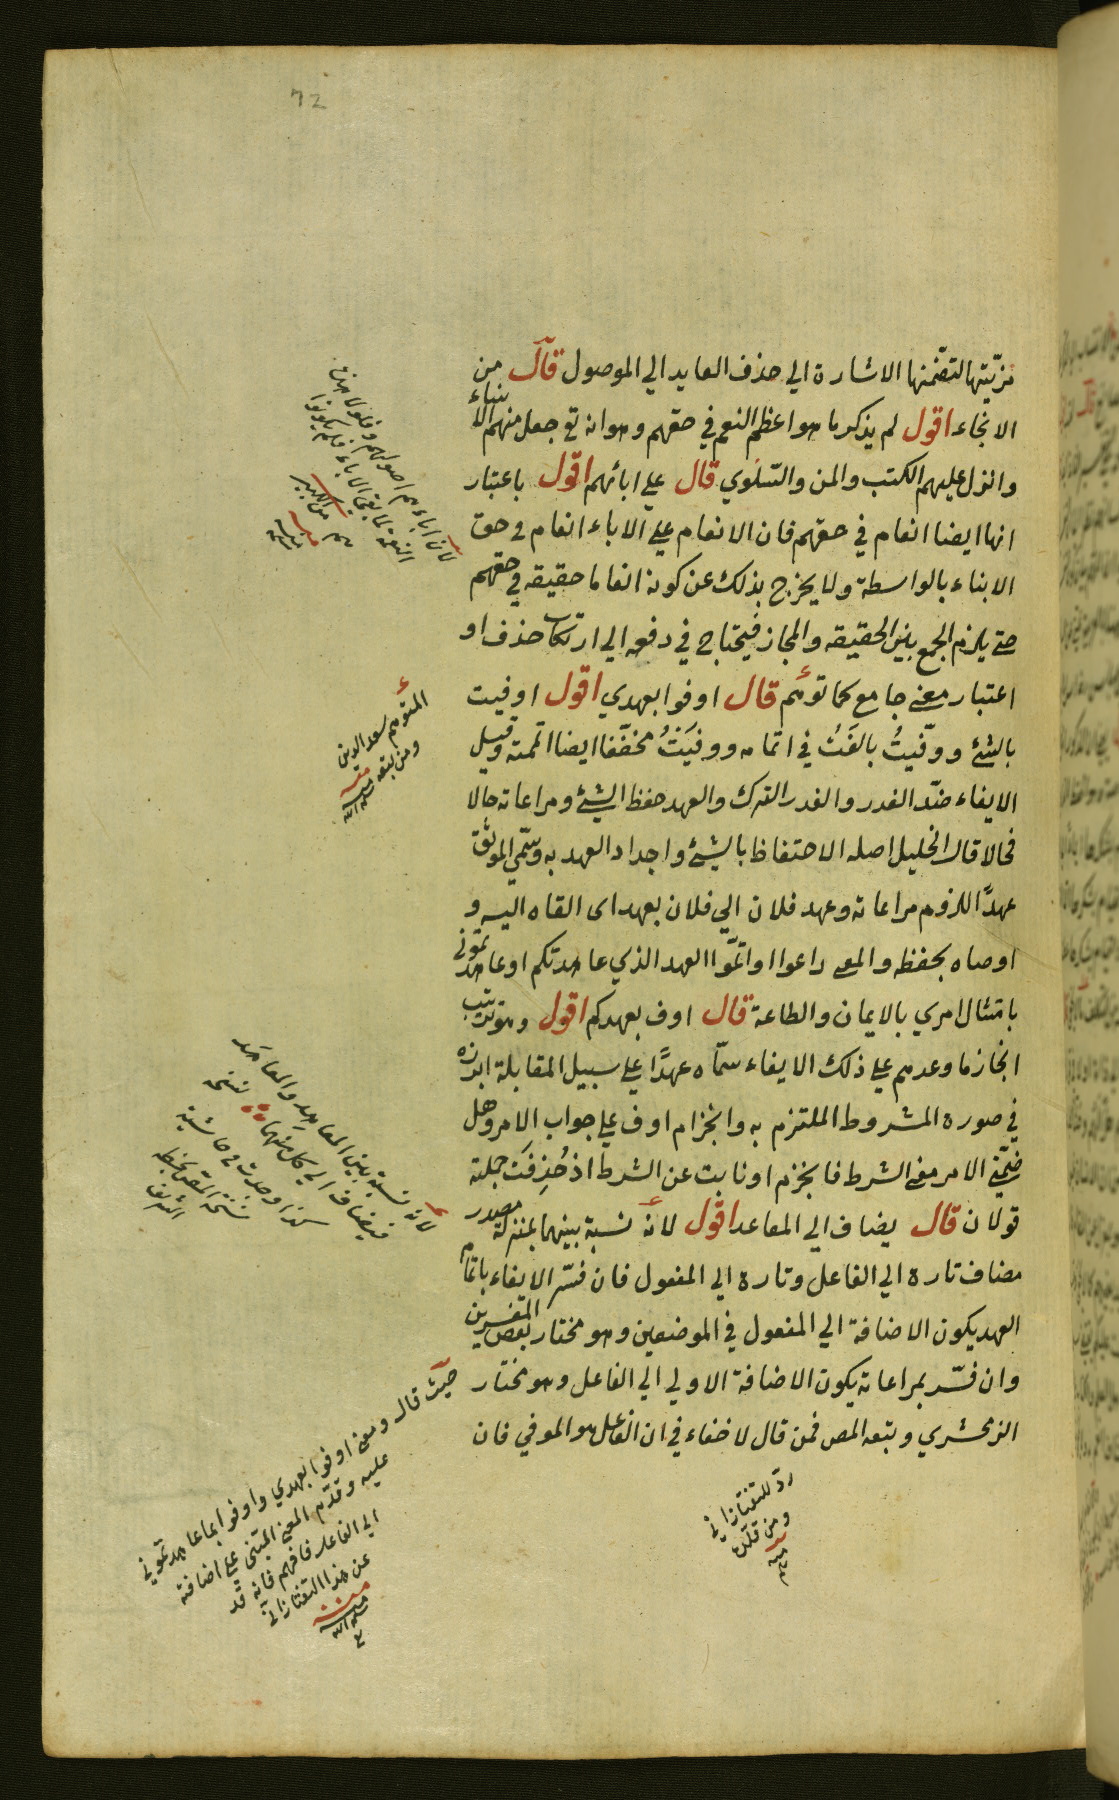 72
مزيتها لتضمنها الاشارة الي حذف العايد الي الموصول قال من
الانجاء اقول لم يذكر ما هو اعظم النعم في حقهم وهو انه تع جعل منهم الانبياء
وانزل عليهم الكتب والمن والسلوي قال علي ابائهم اقول باعتبار
انها ايضا انعام في حقهم فان الانعام علي الاباء انعام في حق
الابناء بالواسطة ولا يخرج بذلك عن كونه انعاما حقيقه في حقهم
حتي يلزم الجمع بين الحقيقه والمجاز فيحتاج في دفعه الي ارتكاب حذف او
اعتبار معني جامع كما توهم قال اوفوا بعهدي اقول اوفيت
بالشئ ووفّيتُ بالغتُ في اتمامه ووفيَتُ مخففا ايضا اتممته وقيل
الايفاء ضدّ الغدر والغدر الترك والعهد حفظ الشئ ومراعاته حالا
فحالا قال الخليل اصله الاحتفاظ بالشئ واجداد العهد به وسمّي الموثق
عهدًا للزوم مراعاته وعهد فلان الي فلان بعهد اي القاه اليه و
اوصاه بحفظه والمعني راعوا او اتمّوا العهد الذي عاهدتكم او عاهدتموني
بامتثال امري بالايمان والطاعة قال اوف بعهدكم اقول وهو ترتيب
انجاز ما وعدهم علي ذلك الايفاء سمّاه عهدًا علي سبيل المقابلة ابرزه
في صورة المشروط الملتزم به وانجزام اوف علي جواب الامر وهل
ضمّن الامر معني الشرط فانجزم او نابت عن الشرط اذ حُذِفَت جملة
قولان قال يضاف الي المعاهد اقول لانه نسبة بينهما بمنزلة مصدر
مضاف تارة الي الفاعل وتارة الي المفعول فان فسّر الايفاء باتمام
العهد يكون الاضافة الي المفعول في الموضعين وهو مختار بعض المفسرين
وان فسّر بمراعاته يكون الاضافة الاولي الي الفاعل وهو مختار
الزمخشري وتبعه المص فمن قال لا خفاء في ان الفاعل هو الموفي فان
لان اباءهم اصولهم فلولا هذه
النعمة لما بقي الاباء فلم يكونوا
المتوهم سعد الدين
ومن تبعه
منه
سلمه الله
لانه نسبة بين المعاهِد والمعاهَد
فيضاف الي كل منهما نسخه
كذا وجدت في حاشية
نسخة المص بخطه
حيث قال ومعني اوفوا بعهدي واوفوا بما عاهدتموني
عليه وقدّم المعني المبتني علي اضافته
الي الفاعل فافهم فانه قد
عن هذا التفتازاني
منه
سلمه الله
ردّ للتفتازاني
ومن قلّده
منه